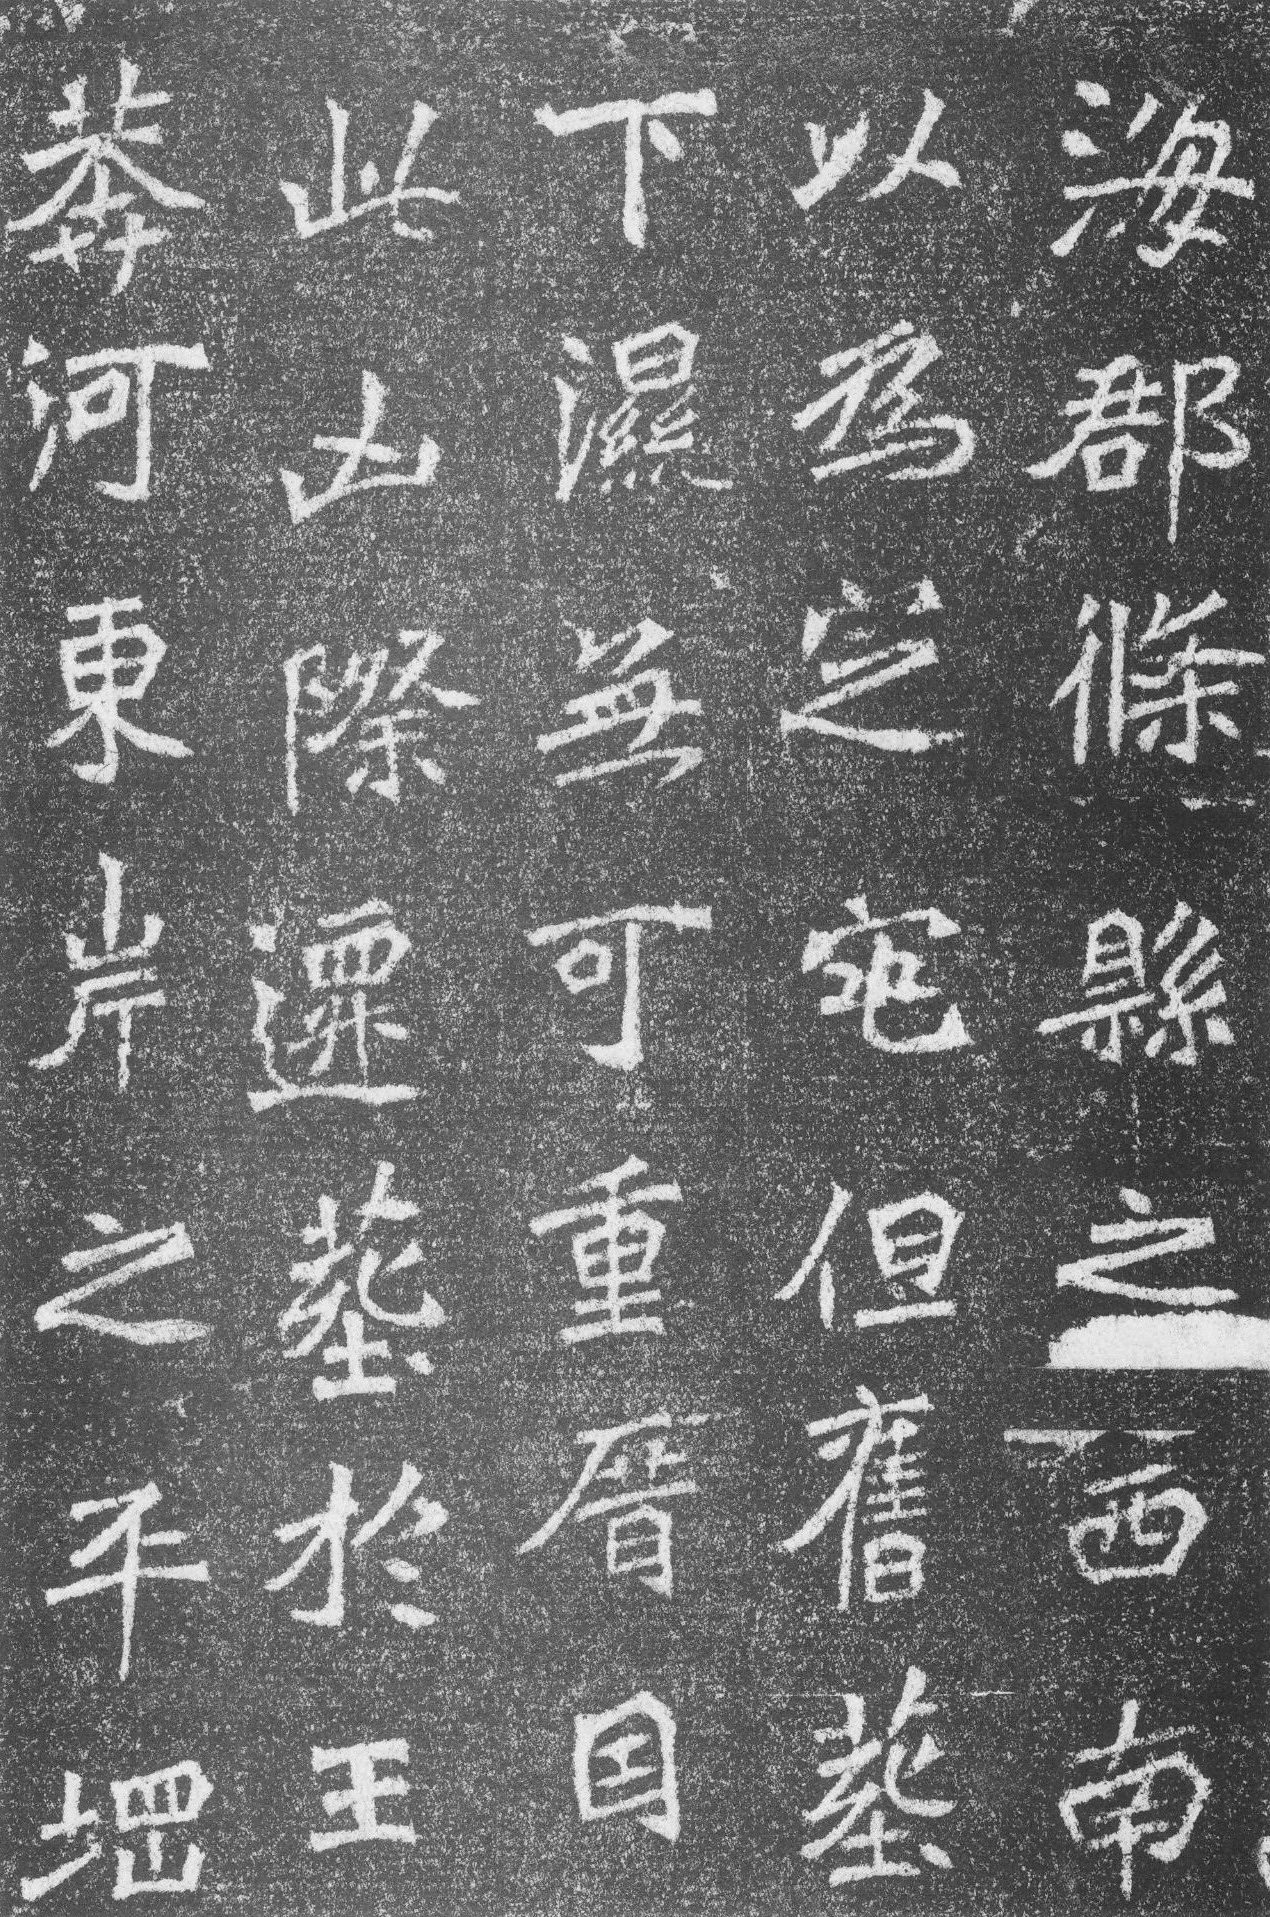 海郡條縣之西南
以為定宅但舊墓
下濕無可重厝囙
此山際遷墓於王
莽河東岸之平堈